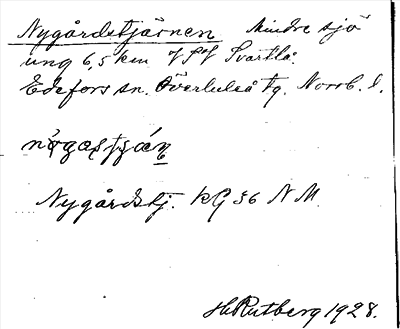 Nygårdstjärnen Mindre sjö
ung 6,5 km Svartlå.
Edefors sn. Överluleå tg. Norrb. l.
Nygårdstj. KG 36 N M.
H Rutberg 1928.